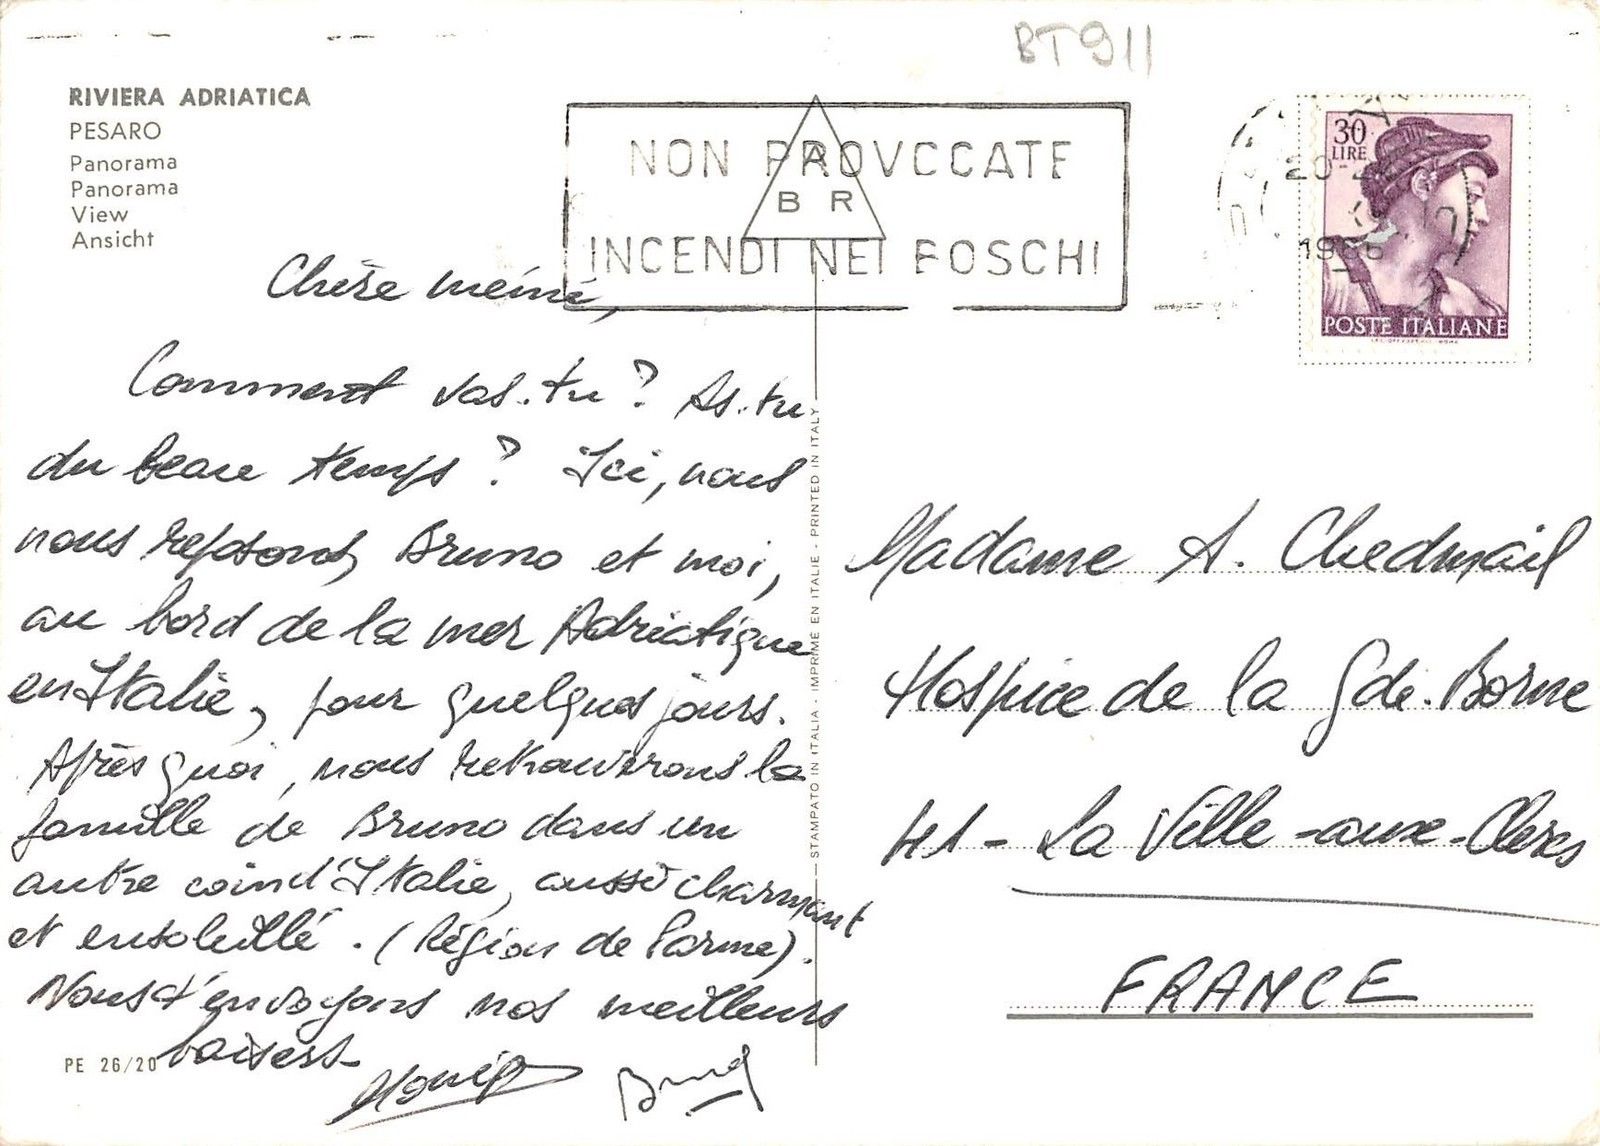 BT911
RIVIERA ADRIATICA
PESARO
Panorama
Panorama
View
Ansicht
NON PROVCCATE
INCENDI NEI BOSCHI
A
B R
20-2
1966
30
LIRE
POSTE ITALIANE
Chère mémé,
Comment vas-tu ? As-tu
du beau temps ? Ici, nous
nous reposons, Bruno et moi,
au bord de la mer Adriatique
en Italie, pour quelques jours.
Après quoi, nous retrouverons la
famille de Bruno dans un
autre coin d'Italie, aussi charmant
et ensoleillé. (Région de Parme).
Nous t'envoyons nos meilleurs
baisers
Monique
Bruno
PE 26/20
STAMPATO IN ITALIA - IMPRIMÉ EN ITALIE - PRINTED IN ITALY
Madame A. Chedmail
Hospice de la Gde. Borne
41 - La Ville-aux-Clercs
FRANCE